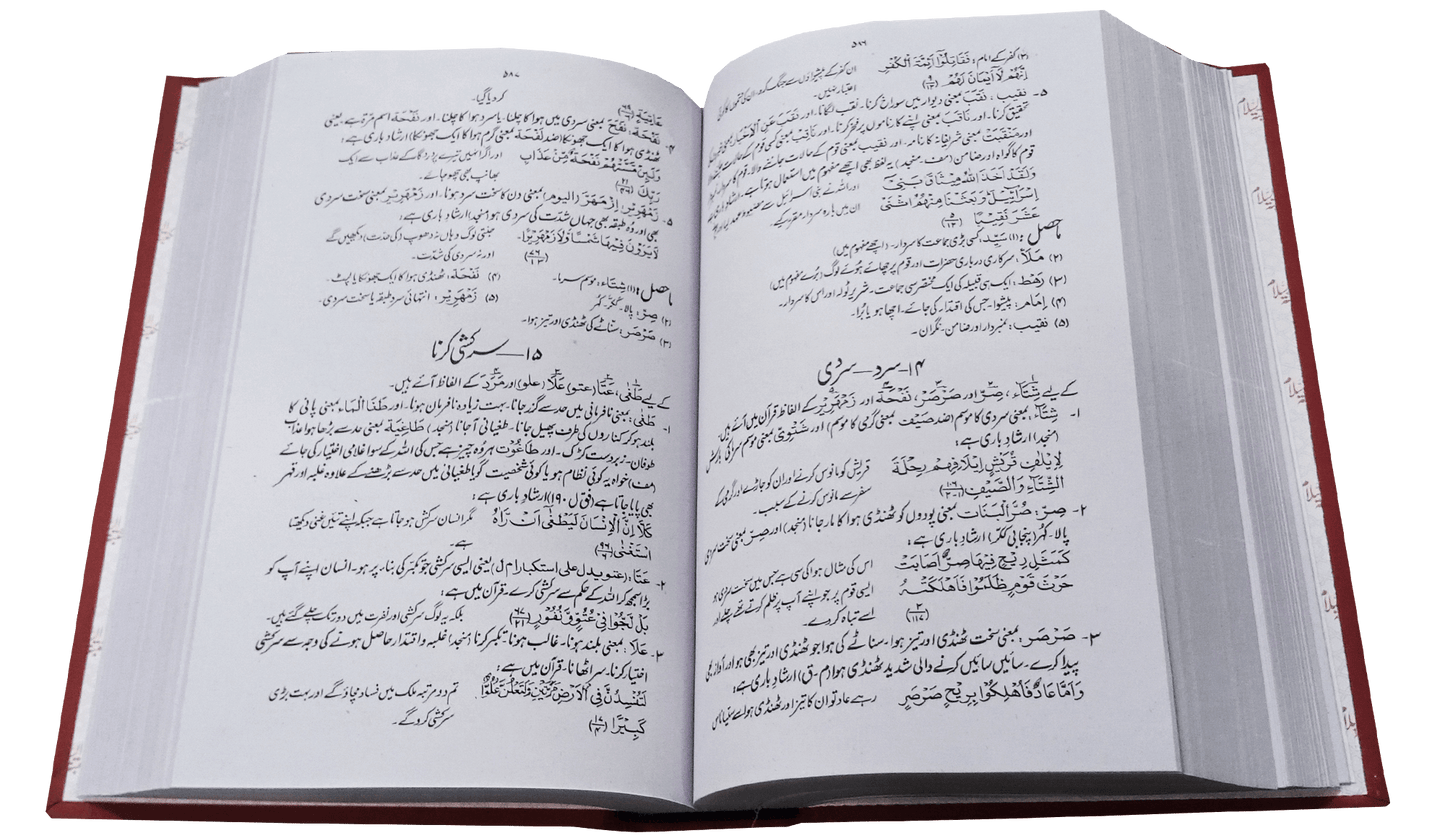 ۵۷۶
(۳) کفر کے امام : فَقَاتِلُوْٓا اَئِمَّةَ الْكُفْرِ ان کفر کے پیشواؤں سے جنگ کرو۔
اِنَّهُمْ لَآ اَيْمَانَ لَهُمْ (۹/۱۲) اعتبار نہیں۔
۵- نقیب ، نَقَبَ بمعنی دیوار میں سوراخ کرنا۔ نقب لگانا۔ اور نَقَبَ عَنِ الْاَخْبَارِ بمعنی
تحقیق کرنا۔ اور نَاقَبَ بمعنی اپنے کارناموں پر فخر کرنا۔ اور نَاقِب بمعنی کسی قوم کے حالات
اور مَنْقَبَتْ بمعنی شریفانہ کارنامہ۔ اور نقیب بمعنی قوم کے حالات جاننے والا۔ قوم کا سردار۔
قوم کا گواہ اور ضامن (مف۔ منجد) یہ لفظ بھی اچھے مفہوم میں استعمال ہوتا ہے۔ ارشاد باری
وَلَقَدْ اَخَذَ اللّٰهُ مِيْثَاقَ بَنِيْٓ اور اللہ نے بنی اسرائیل سے مضبوط عہد لیا اور
اِسْرَآءِيْلَ وَبَعَثْنَا مِنْهُمُ اثْنَيْ ان میں بارہ سردار مقرر کیے۔
عَشَرَ نَقِيْبًا (۵/۱۲)
ماحصل : (۱) سَیِّد، کسی بڑی جماعت کا سردار۔ (اچھے مفہوم میں)
(۲) مَلَا، سرکاری درباری حضرات اور قوم پر چھائے ہوئے لوگ (بُرے مفہوم میں)
(۳) رَهْط، ایک ہی قبیلہ کی ایک مختصر سی جماعت۔ شریر ٹولہ اور اس کا سردار۔
(۴) اِمَام: پیشوا۔ جس کی اقتداء کی جائے۔ اچھا ہو یا بُرا۔
(۵) نقیب: نمبردار اور ضامن۔ نگران۔
۱۴—سرد—سردی
کے لیے شِتَآء، صِرّ اور صَرْصَر، نَفْحَة اور زَمْهَرِيْر کے الفاظ قرآن میں آئے ہیں۔
۱- شِتَآء، بمعنی سردی کا موسم (ضد صَیْف بمعنی گرمی کا موسم) اور شَتْوِیّ بمعنی موسم سرما کی بارش
(منجد) ارشادِ باری ہے؛
لِاِيْلٰفِ قُرَيْشٍ اِيْلَافِهِمْ رِحْلَةَ قریش کو مانوس کرنے اور ان کو جاڑے اور گرمی کے
الشِّتَآءِ وَالصَّيْفِ (۱۰۶/۱-۲) سفر سے مانوس کرنے کے سبب۔
۲- صِرّ: صُرَّ النَّبَات بمعنی پودوں کو ٹھنڈی ہوا کا مار جانا (منجد) اور صِرّ بمعنی سخت سردی
پالا۔ کہُر (پنجابی ککّر) ارشادِ باری ہے؛
كَمَثَلِ رِيْحٍ فِيْهَا صِرٌّ اَصَابَتْ اس کی مثال ہوا کی سی ہے جس میں سخت سردی ہو
حَرْثَ قَوْمٍ ظَلَمُوْٓا فَاَهْلَكَتْهُ ایسی قوم پر جو اپنے آپ پر ظلم کرتے تھے چلے اور
(۳/۱۱۷) اسے تباہ کر دے۔
۳- صَرْصَر ، بمعنی سخت ٹھنڈی اور تیز ہوا۔ سناٹے کی ہوا جو ٹھنڈی اور تیز بھی ہو اور آواز بھی
پیدا کرے۔ سائیں سائیں کرنے والی شدید ٹھنڈی ہوا (م-ق) ارشادِ باری ہے؛
وَاَمَّا عَادٌ فَاُهْلِكُوْا بِرِيْحٍ صَرْصَرٍ رہے عاد تو ان کا تیز اور ٹھنڈی ہوا سے
۵۸۷
عَاتِيَةٍ (۶۹/۶) کر دیا گیا۔
۴- نَفْحَة، نَفَحَ بمعنی سردی میں ہوا کا چلنا۔ یا سرد ہوا کا چلنا۔ اور نَفْحَة اسم مرۃ ہے، بمعنی
ٹھنڈی ہوا کا ایک جھونکا (ضد لَفْحَة بمعنی گرم ہوا کا ایک جھونکا) ارشادِ باری ہے؛
وَلَئِنْ مَّسَّتْهُمْ نَفْحَةٌ مِّنْ عَذَابِ اور اگر انہیں تیرے پروردگار کے عذاب سے ایک
رَبِّكَ (۲۱/۴۶) بھانپ بھی چھو جائے۔
۵- زَمْهَرِيْر، اِزْمَهَرَّ (الیوم) بمعنی دن کا سخت سرد ہونا۔ اور زَمْهَرِيْر بمعنی سخت سردی
بھی اور وہ طبقہ بھی جہاں شدّت کی سردی ہو (منجد) ارشادِ باری ہے؛
لَا يَرَوْنَ فِيْهَا شَمْسًا وَّلَا زَمْهَرِيْرًا۔ جنتی لوگ وہاں نہ دھوپ (کی حدّت) دیکھیں گے
(۷۶/۱۳) اور نہ سردی کی شدّت۔
ماحصل : (۱) شِتَاء: موسم سرما۔ (۴) نَفْحَة، ٹھنڈی ہوا کا ایک جھونکا یا لپٹ۔
(۲) صِرّ: پالا۔ ککّر۔ کہُر (۵) زَمْهَرِيْر؛ انتہائی سرد طبقہ یا سخت سردی۔
(۳) صَرْصَر: سناٹے کی ٹھنڈی اور تیز ہوا۔
۱۵—سرکشی کرنا
کے لیے طَغٰی، عَتَا (عتو) عَلَا (علو) اور مَرَدَ کے الفاظ آئے ہیں۔
۱- طَغٰی: بمعنی نافرمانی میں حد سے گزر جانا۔ بہت زیادہ نافرمان ہونا۔ اور طَغَا الْمَاء بمعنی پانی کا
بلند ہو کر کناروں کی طرف پھیل جانا۔ طغیانی آجانا (منجد) طَاغِیَة بمعنی حد سے بڑھا ہوا عذاب
طوفان۔ زبردست کڑک۔ اور طاغوت ہر وہ چیز ہے جس کی اللہ کے سوا غلامی اختیار کی جائے
(مف) خواہ یہ کوئی نظام ہو یا کوئی شخصیت گویا طغیانی میں حد سے بڑھنے کے علاوہ غلبہ اور قہر
بھی پایا جاتا ہے (فق ل ۱۹۰) ارشادِ باری ہے؛
كَلَّآ اِنَّ الْاِنْسَانَ لَيَطْغٰٓى اَنْ رَّاٰهُ مگر انسان سرکش ہو جاتا ہے جبکہ اپنے تئیں غنی دیکھتا
اسْتَغْنٰى (۹۶/۷) ہے۔
۲- عَتَا، (عتو یدل علی استکبار م ل) یعنی ایسی سرکشی جو تکبر کی بناء پر ہو۔ انسان اپنے آپ کو
بڑا سمجھ کر اللہ کے حکم سے سرکشی کرے۔ قرآن میں ہے؛
بَلْ لَّجُّوْا فِيْ عُتُوٍّ وَّنُفُوْرٍ (۶۷/۲۱) بلکہ یہ لوگ سرکشی اور نفرت میں دور تک چلے گئے ہیں۔
۳- عَلَا؛ بمعنی بلند ہونا۔ غالب ہونا۔ تکبر کرنا (منجد) غلبہ و اقتدار حاصل ہونے کی وجہ سے سرکشی
اختیار کرنا۔ سر اٹھانا۔ قرآن میں ہے؛
لَتُفْسِدُنَّ فِي الْاَرْضِ مَرَّتَيْنِ وَلَتَعْلُنَّ عُلُوًّا تم دو مرتبہ ملک میں فساد مچاؤ گے اور بہت بڑی
كَبِيْرًا (۱۷/۴) سرکشی کرو گے۔